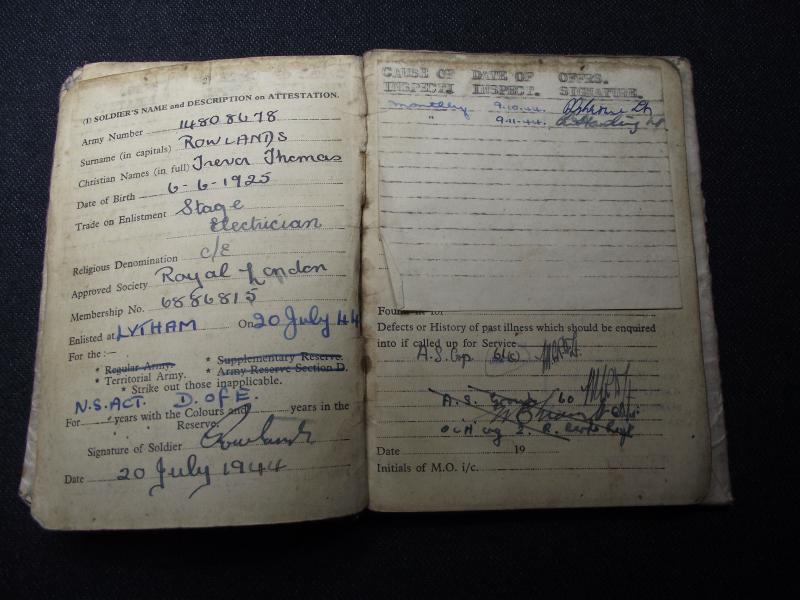 2
(I) SOLDIER'S NAME and DESCRIPTION on ATTESTATION.
Army Number 14808678
Surname (in capitals) ROWLANDS
Christian Names (in full) Trevor Thomas
Date of Birth 6-6-1925
Trade on Enlistment Stage
Electrician
Religious Denomination C/E
Approved Society Royal London
Membership No. 6886815
Enlisted at LYTHAM On 20 July 44
For the :—
* Regular Army. * Supplementary Reserve.
* Territorial Army. * Army Reserve Section D.
* Strike out those inapplicable.
N.S. ACT. D. OF E.
For years with the Colours and years in the
Reserve.
Signature of Soldier Rowlands
Date 20 July 1944
CAUSE OF DATE OF OFFRS.
INSPECT: INSPECT. SIGNATURE.
Monthly 9-10-44.
" 9-11-44. Harding
Found fit for
Defects or History of past illness which should be enquired
into if called up for Service
A.S. Grp
A.S. Group 60
Date 19
Initials of M.O. i/c.